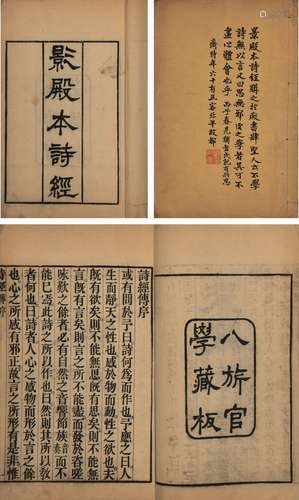 影殿本詩經
景殿本詩經購之於廠書肆聖人云不學
詩無以言又曰思無邪後之學者其可不
盡心體會也乎 丙子春見
齋時年六十有五客北平故都
八旂官
學藏板
詩經傳序
或有問於予曰詩何爲而作也予應之曰人
生而靜天之性也感於物而動性之欲也夫
既有欲矣則不能無思既有思矣則不能無
言既有言矣則言之所不能盡而發於咨嗟
咏歎之餘者必有自然之音響節族音奏而不
能已焉此詩之所以作也曰然則其所以教
者何也曰詩者人心之感物而形於言之餘
也心之所感有邪正故言之所形有是非惟
詩經傳序